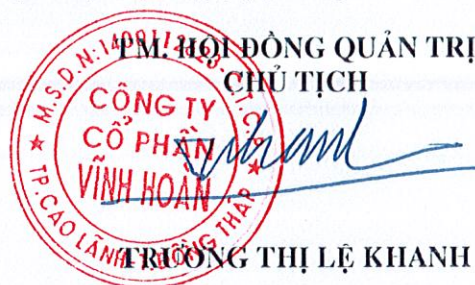 TM. HỘI ĐỒNG QUẢN TRỊ
CHỦ TỊCH
M.S.D.N:
C.T.C.P
CÔNG TY
CỔ PHẦN
VĨNH HOÀN
TP.CAO LÃNH T.ĐỒNG THÁP
TRƯƠNG THỊ LỆ KHANH